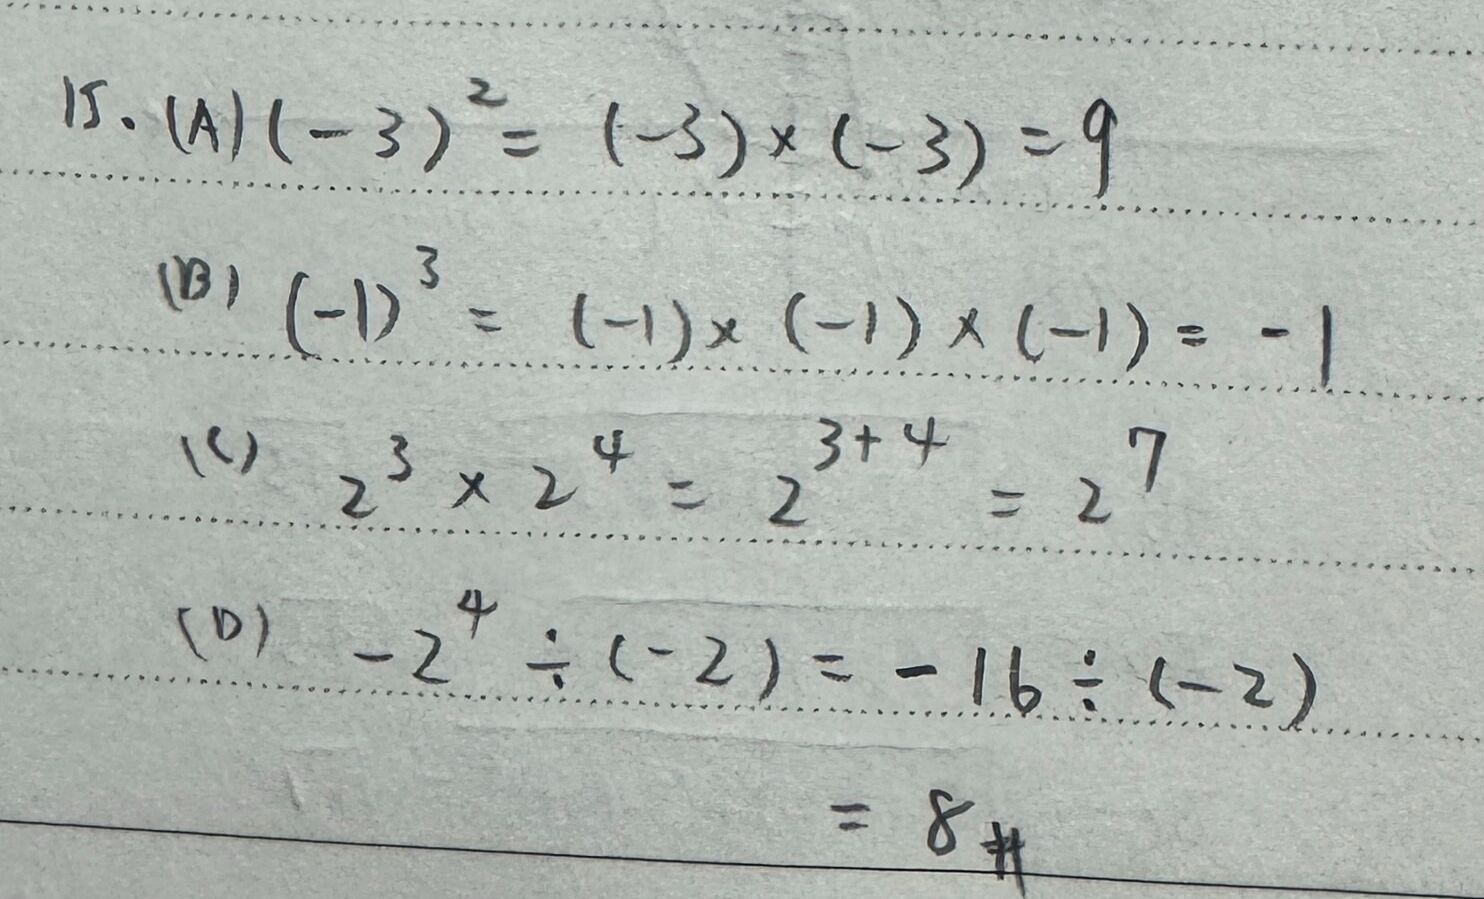 15. (A) (-3)² = (-3) × (-3) = 9
(B) (-1)³ = (-1) × (-1) × (-1) = -1
(C) 2³ × 2⁴ = 2³⁺⁴ = 2⁷
(D) -2⁴ ÷ (-2) = -16 ÷ (-2)
= 8 #